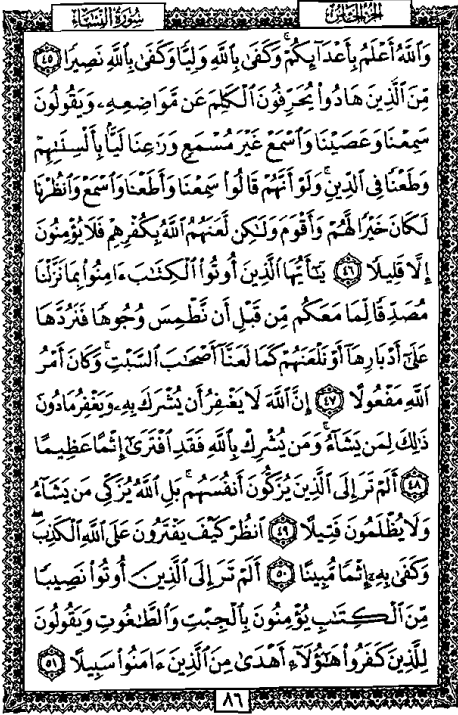 الجزء الخامس سورة النساء
وَاللَّهُ أَعْلَمُ بِأَعْدَائِكُمْ ۚ وَكَفَىٰ بِاللَّهِ وَلِيًّا وَكَفَىٰ بِاللَّهِ نَصِيرًا ٤٥
مِّنَ الَّذِينَ هَادُوا يُحَرِّفُونَ الْكَلِمَ عَن مَّوَاضِعِهِ وَيَقُولُونَ
سَمِعْنَا وَعَصَيْنَا وَاسْمَعْ غَيْرَ مُسْمَعٍ وَرَاعِنَا لَيًّا بِأَلْسِنَتِهِمْ
وَطَعْنًا فِي الدِّينِ ۚ وَلَوْ أَنَّهُمْ قَالُوا سَمِعْنَا وَأَطَعْنَا وَاسْمَعْ وَانظُرْنَا
لَكَانَ خَيْرًا لَّهُمْ وَأَقْوَمَ وَلَٰكِن لَّعَنَهُمُ اللَّهُ بِكُفْرِهِمْ فَلَا يُؤْمِنُونَ
إِلَّا قَلِيلًا ٤٦ يَٰأَيُّهَا الَّذِينَ أُوتُوا الْكِتَٰبَ ءَامِنُوا بِمَا نَزَّلْنَا
مُصَدِّقًا لِّمَا مَعَكُم مِّن قَبْلِ أَن نَّطْمِسَ وُجُوهًا فَنَرُدَّهَا
عَلَىٰ أَدْبَارِهَا أَوْ نَلْعَنَهُمْ كَمَا لَعَنَّا أَصْحَٰبَ السَّبْتِ ۚ وَكَانَ أَمْرُ
اللَّهِ مَفْعُولًا ٤٧ إِنَّ اللَّهَ لَا يَغْفِرُ أَن يُشْرَكَ بِهِ وَيَغْفِرُ مَا دُونَ
ذَٰلِكَ لِمَن يَشَاءُ ۚ وَمَن يُشْرِكْ بِاللَّهِ فَقَدِ افْتَرَىٰ إِثْمًا عَظِيمًا
٤٨ أَلَمْ تَرَ إِلَى الَّذِينَ يُزَكُّونَ أَنفُسَهُم ۚ بَلِ اللَّهُ يُزَكِّي مَن يَشَاءُ
وَلَا يُظْلَمُونَ فَتِيلًا ٤٩ انظُرْ كَيْفَ يَفْتَرُونَ عَلَى اللَّهِ الْكَذِبَ ۖ
وَكَفَىٰ بِهِ إِثْمًا مُّبِينًا ٥٠ أَلَمْ تَرَ إِلَى الَّذِينَ أُوتُوا نَصِيبًا
مِّنَ الْكِتَٰبِ يُؤْمِنُونَ بِالْجِبْتِ وَالطَّٰغُوتِ وَيَقُولُونَ
لِلَّذِينَ كَفَرُوا هَٰؤُلَاءِ أَهْدَىٰ مِنَ الَّذِينَ ءَامَنُوا سَبِيلًا ٥١
٨٦